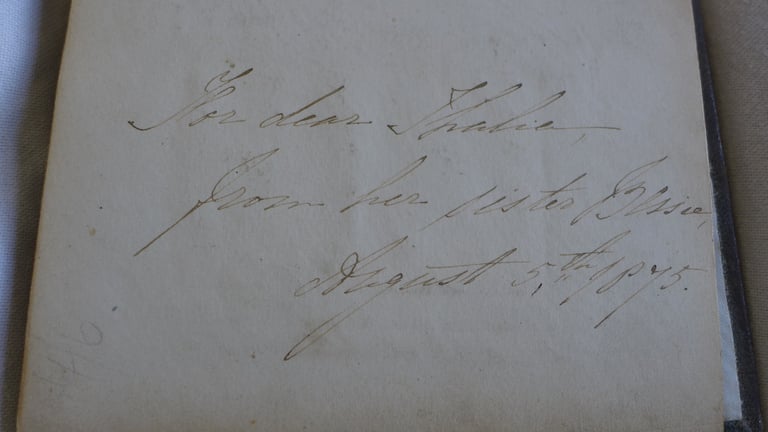 For dear Thalia,
from her sister Bessie,
August 5th, 1875.